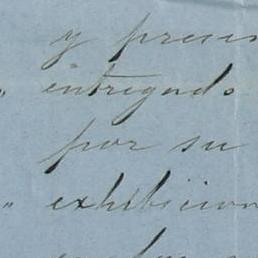 y preci
„ entregado
por su
„ exhibicion